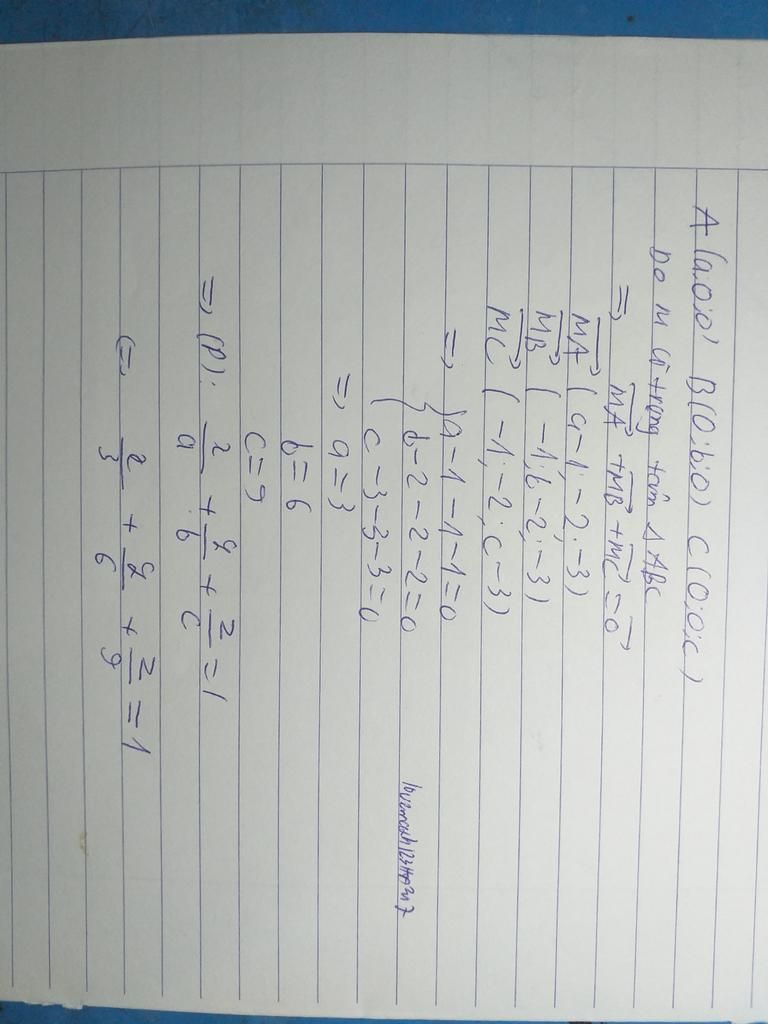 A(a;0;0) B(0;b;0) C(0;0;c)
Do M là trọng tâm Δ ABC
=> MA + MB + MC = 0
MA (a-1;-2;-3)
MB (-1;b-2;-3)
MC (-1;-2;c-3)
=> { a-1-1-1=0
b-2-2-2=0
c-3-3-3=0
=> a=3
b=6
c=9
=> (P): x/a + y/b + z/c = 1
(=) x/3 + y/6 + z/9 = 1